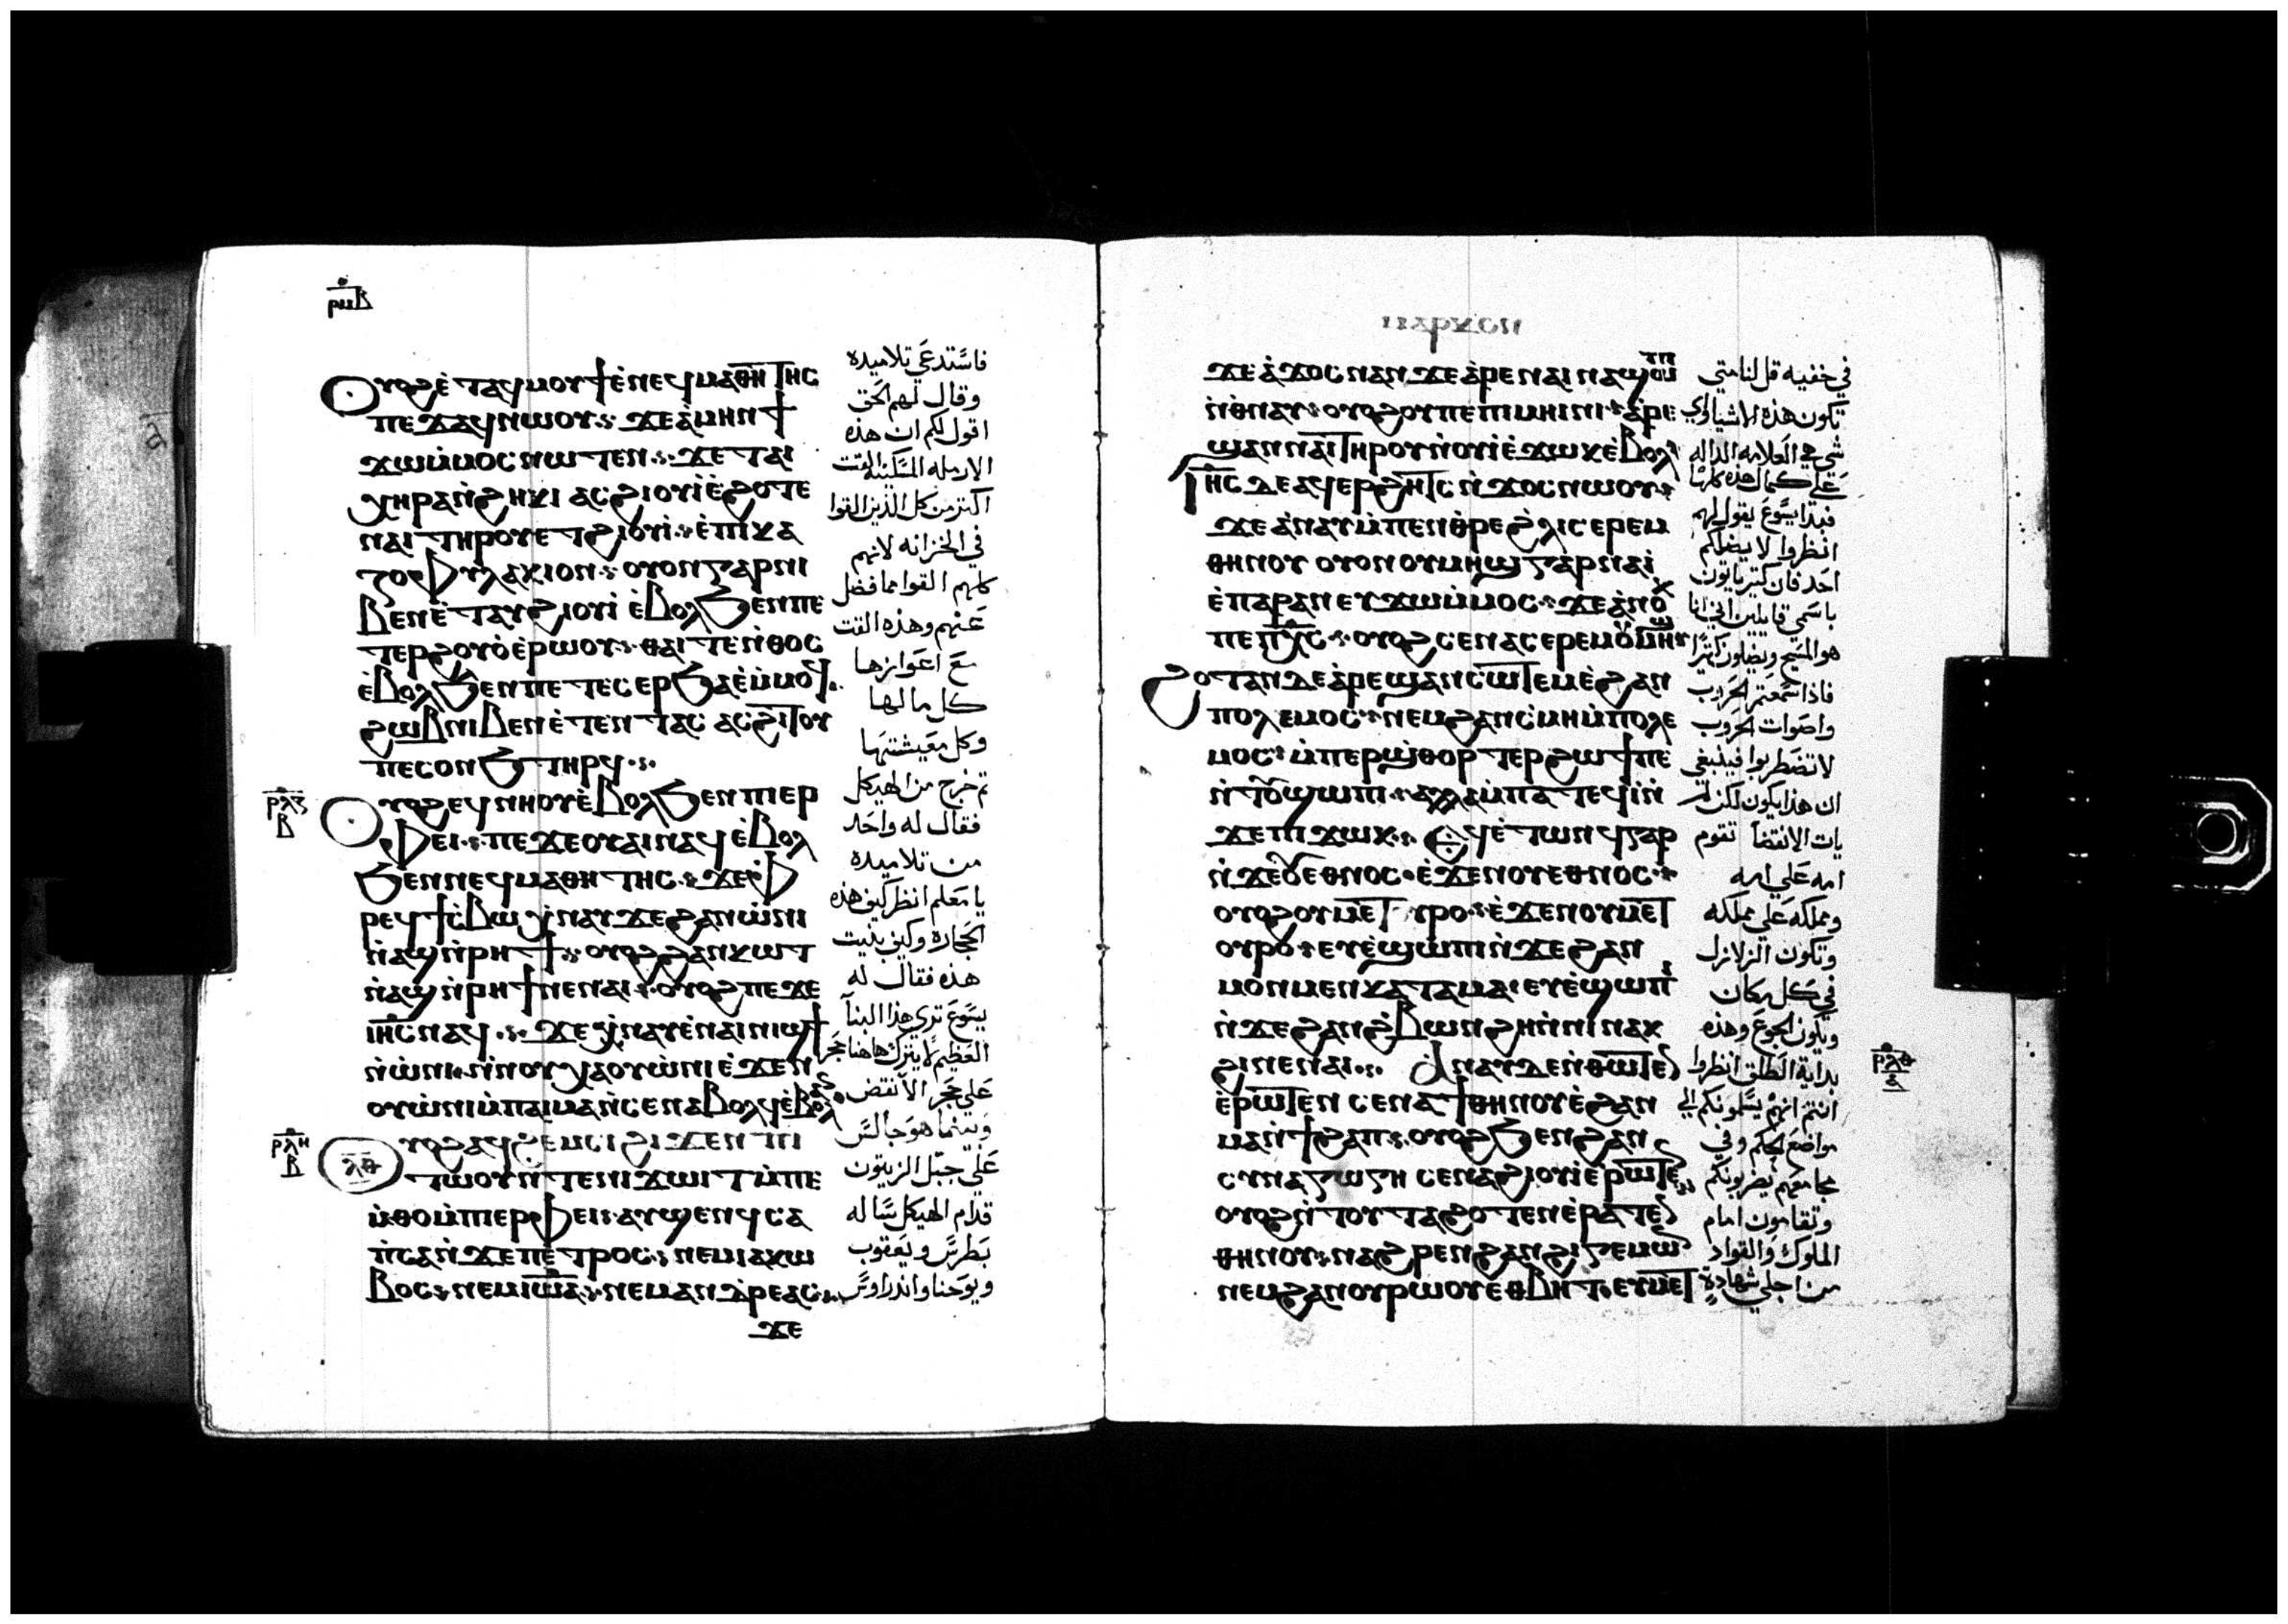 ⲣⲙⲃ
ⲟⲩⲟϩ ⲉⲧⲁϥⲙⲟⲩϯ ⲉⲛⲉϥⲙⲁⲑⲏⲧⲏⲥ
ⲡⲉϫⲁϥ ⲛⲱⲟⲩ ϫⲉ ⲁⲙⲏⲛ ϯ
ϫⲱ ⲙⲙⲟⲥ ⲛⲱⲧⲉⲛ ϫⲉ ⲧⲁⲓ
ⲭⲏⲣⲁ ⲛϩⲏⲕⲓ ⲁⲥϩⲓⲟⲩⲓ ⲉϩⲟⲧⲉ
ⲛⲁⲓ ⲧⲏⲣⲟⲩ ⲉⲧϩⲓⲟⲩⲓ ⲉⲡⲓⲕⲁ
ⲍⲟⲫⲩⲗⲁⲕⲓⲟⲛ ⲟⲩⲟⲛ ⲅⲁⲣ ⲛⲓ
ⲃⲉⲛ ⲉⲧⲁⲩϩⲓⲟⲩⲓ ⲉⲃⲟⲗ ϧⲉⲛ ⲡⲉ
ⲧⲉⲣϩⲟⲩⲟ ⲉⲣⲱⲟⲩ ⲑⲁⲓ ⲧⲉ ⲛⲑⲟⲥ
ⲉⲃⲟⲗ ϧⲉⲛ ⲡⲉⲧⲉⲥⲉⲣϧⲁⲉ ⲙⲙⲟϥ
ϩⲱⲃ ⲛⲓⲃⲉⲛ ⲉⲧⲉⲛⲧⲁⲥ ⲁⲥϩⲓⲧⲟⲩ
ⲡⲉⲥⲱⲛϧ ⲧⲏⲣϥ
ⲣⲗⲍ
ⲃ
ⲟⲩⲟϩ ⲉϥⲛⲏⲟⲩ ⲉⲃⲟⲗ ϧⲉⲛ ⲡⲓⲉⲣ
ⲫⲉⲓ ⲡⲉϫⲉ ⲟⲩⲁⲓ ⲛⲁϥ ⲉⲃⲟⲗ
ϧⲉⲛ ⲛⲉϥⲙⲁⲑⲏⲧⲏⲥ ϫⲉ ⲫ
ⲣⲉϥϯⲥⲃⲱ ϫ ⲛⲁⲩ ϫⲉ ϩⲁⲛⲱⲛⲓ
ⲛⲁϣ ⲛⲣⲏϯ ⲟⲩⲟϩ ϩⲁⲛⲕⲱⲧ
ⲛⲁϣ ⲛⲣⲏϯ ⲛⲉ ⲛⲁⲓ ⲟⲩⲟϩ ⲡⲉϫⲉ
ⲓⲏⲥ ⲛⲁϥ ϫⲉ ⲭⲛⲁⲩ ⲉⲛⲁⲓⲛⲓϣϯ
ⲛⲱⲛⲓ ⲛⲛⲟⲩⲭⲁ ⲟⲩⲱⲛⲓ ⲉϫⲉⲛ
ⲟⲩⲱⲛⲓ ⲙⲡⲁⲓⲙⲁ ⲛⲥⲉⲛⲁⲃⲟⲗϥ ⲉⲃⲟⲗ
ⲣⲗⲏ
ⲃ
ⲗⲑ
ⲟⲩⲟϩ ⲁϥϩⲉⲙⲥⲓ ϩⲓϫⲉⲛ ⲡⲓ
ⲧⲱⲟⲩ ⲛⲧⲉ ⲛⲓϫⲱⲓⲧ ⲙⲡⲉ
ⲙⲑⲟ ⲙⲡⲓⲉⲣⲫⲉⲓ ⲁⲩϣⲉⲛϥ ⲥⲁ
ⲡⲥⲁ ⲛϫⲉ ⲡⲉⲧⲣⲟⲥ ⲛⲉⲙ ⲓⲁⲕⲱ
ⲃⲟⲥ ⲛⲉⲙ ⲓⲱⲁ ⲛⲉⲙ ⲁⲛⲇⲣⲉⲁⲥ
ϫⲉ
فاستدعي تلاميده
وقال لهم الحق
اقول لكم ان هذه
الارمله المسكينة القت
اكتر من كل الذين القوا
في الخزانه لانهم
كلهم القوا مما فضل
عنهم وهذه القت
مع اعوازها
كل مالها
وكل معيشتها
تم خرج من الهيكل
فقال له واحد
من تلاميده
يا معلم انظر كيف هذه
الحجارة وكيف بنيت
هذه فقال له
يسوع تري هذا البنا
العظيم لا يترك هاهنا حجر
علي حجر الا نتقض
وبينما هو جالس
علي جبل الزيتون
قدام الهيكل ساله
بطرس ويعقوب
ويوحنا واندراوس
ⲙⲁⲣⲕⲟⲛ
ϫⲉ ⲁϫⲟⲥ ⲛⲁⲛ ϫⲉ ⲁⲣⲉ ⲛⲁⲓ ⲛⲁϣⲱⲡⲓ
ⲛⲑⲛⲁⲩ ⲟⲩⲟϩ ⲟⲩ ⲡⲉ ⲡⲓⲙⲏⲓⲛⲓ ⲁⲣⲉ
ϣⲁⲛ ⲛⲁⲓ ⲧⲏⲣⲟⲩ ⲛⲟⲩⲓ ⲉϫⲱⲕ ⲉⲃⲟⲗ
ⲓⲏⲥ ⲇⲉ ⲁϥⲉⲣϩⲏⲧⲥ ⲛϫⲟⲥ ⲛⲱⲟⲩ
ϫⲉ ⲁⲛⲁⲩ ⲙⲡⲉⲛⲑⲣⲉ ϩⲗⲓ ⲥⲉⲣⲉⲙ
ⲑⲏⲛⲟⲩ ⲟⲩⲟⲛ ⲟⲩⲙⲏϣ ⲅⲁⲣ ⲛⲁⲓ
ⲉⲡⲁⲣⲁⲛ ⲉⲩϫⲱ ⲙⲙⲟⲥ ϫⲉ ⲁⲛⲟⲕ
ⲡⲉ ⲡⲭⲥ ⲟⲩⲟϩ ⲥⲉⲛⲁⲥⲉⲣⲉⲙ ⲟⲩⲙⲏϣ
ϩⲟⲧⲁⲛ ⲇⲉ ⲁⲣⲉϣⲁⲛⲥⲱⲧⲉⲙ ⲉϩⲁⲛ
ⲡⲟⲗⲉⲙⲟⲥ ⲛⲉⲙ ϩⲁⲛⲥⲙⲏ ⲙⲡⲟⲗⲉ
ⲙⲟⲥ ⲙⲡⲉⲣϣⲑⲟⲣⲧⲉⲣ ϩⲱϯ ⲡⲉ
ⲛⲧⲟⲩϣⲱⲡⲓ ⲁⲗⲗⲁ ⲙⲡⲁⲧⲉϥⲓ ⲛ
ϫⲉ ⲡⲓϫⲱⲕ ⲉϥⲉⲧⲱⲛϥ ⲅⲁⲣ
ⲛϫⲉ ⲟⲩⲉⲑⲛⲟⲥ ⲉϫⲉⲛ ⲟⲩⲉⲑⲛⲟⲥ
ⲟⲩⲟϩ ⲟⲩⲙⲉⲧⲟⲩⲣⲟ ⲉϫⲉⲛ ⲟⲩⲙⲉⲧ
ⲟⲩⲣⲟ ⲉⲩⲉϣⲱⲡⲓ ⲛϫⲉ ϩⲁⲛ
ⲙⲟⲛⲙⲉⲛ ⲕⲁⲧⲁ ⲙⲁ ⲉⲩⲉϣⲱⲡⲓ
ⲛϫⲉ ϩⲁⲛϩⲃⲱⲛ ϩⲏ ⲛⲛⲓⲛⲁⲕ
ϩⲓ ⲛⲉ ⲛⲁⲓ ⲁⲛⲁⲩ ⲇⲉ ⲛⲑⲱⲧⲉⲛ
ⲉⲣⲱⲧⲉⲛ ⲥⲉⲛⲁϯⲑⲏⲛⲟⲩ ⲉϩⲁⲛ
ⲙⲁⲛϯϩⲁⲡ ⲟⲩⲟϩ ϧⲉⲛ ϩⲁⲛ
ⲥⲩⲛⲁⲅⲱⲅⲏ ⲥⲉⲛⲁϩⲓⲟⲩⲓ ⲉⲣⲱⲧⲉⲛ
ⲟⲩⲟϩ ⲛⲧⲟⲩⲧⲁϩⲟ ⲧⲉⲛ ⲉⲣⲁⲧⲉⲛ
ⲑⲏⲛⲟⲩ ⲛⲁϩⲣⲉⲛ ϩⲁⲛϩⲓⲅⲉⲙⲱⲛ
ⲛⲉⲙ ϩⲁⲛⲟⲩⲣⲱⲟⲩ ⲉⲑⲃⲏⲧ ⲉⲩⲙⲉⲧ
ⲣⲗⲑ
ⲁ
في خفيه قل لنا متي
تكون هذه الاشيا واي
شي هي العلامه الداله
علي كمال هذه كلها
فبدا يسوع يقول لهم
انظروا لا يضلكم
احد فان كتير ياتون
باسمي قايلين اني انا
هو المسيح ويضلون كتيرا
فاذا سمعتم الحروب
واصوات الحروب
لا تضطربوا فينبغي
ان هذا يكون لكن لم
يات الانقضا تقوم
امه علي امه
ومملكه علي مملكه
وتكون الزلازل
في كل مكان
ويكون الجوع وهذه
بداية الطلق انظروا
انتم انهم يسلمونكم الي
مواضع الحكم وفي
مجامعهم يضربونكم
وتقامون امام
الملوك والقواد
من اجلي شهادة